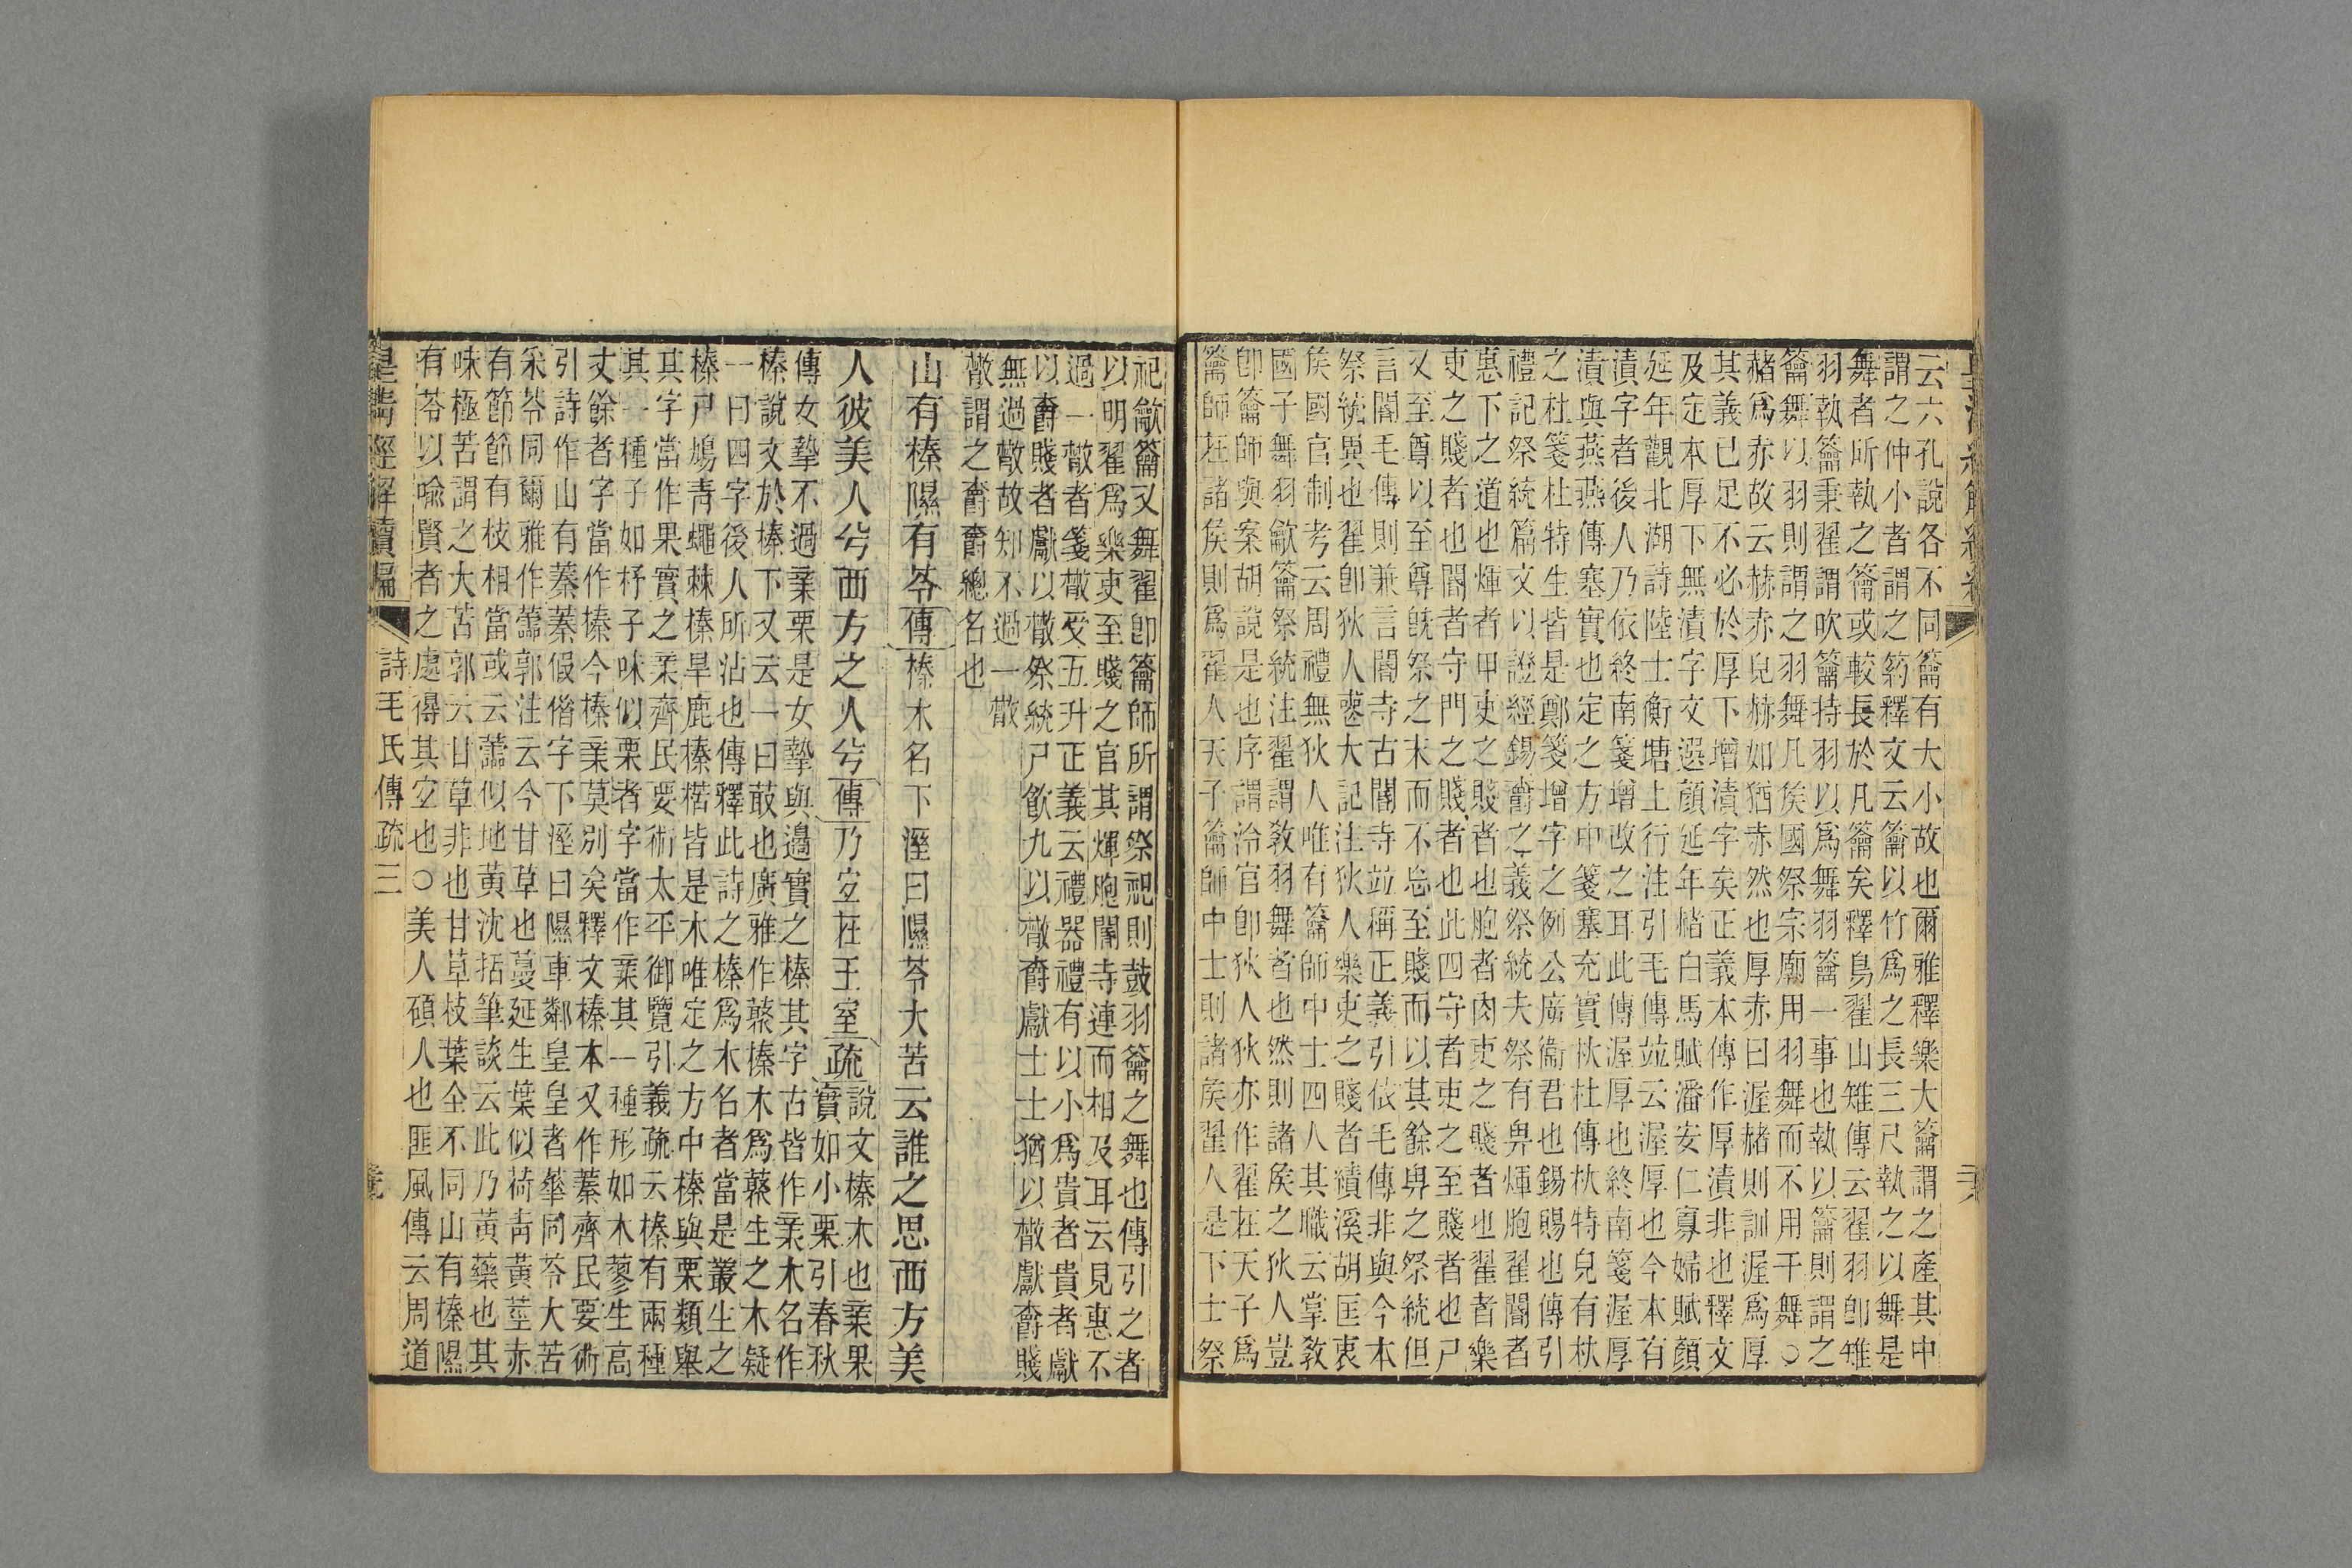 云六孔說各不同籥有大小故也爾雅釋樂大籥謂之產其中
謂之仲小者謂之箹釋文云籥以竹爲之長三尺執之以舞是
舞者所執之籥或較長於凡籥矣釋鳥翟山雉傳云翟羽卽雉
羽執籥秉翟謂吹籥持羽以爲舞羽籥一事也執以籥則謂之
籥舞以羽則謂之羽舞凡矦國祭宗廟用羽舞而不用干舞○
赭爲赤故云赫赤皃赫如猶赤然也厚赤曰渥赭則訓渥爲厚
其義已足不必於厚下增漬字矣正義本傳作厚漬非也釋文
及定本厚下無漬字文選顏延年赭白馬賦潘安仁寡婦賦顏
延年觀北湖詩陸士衡塘上行注引毛傳竝云渥厚也今本有
漬字者後人乃依終南箋增改之耳此傳渥厚也終南箋渥厚
漬與燕燕傳塞實也定之方中箋塞充實杕杜傳杕特皃有杕
之杜箋杜特生皆是鄭箋增字之例公庿衞君也錫賜也傳引
禮記祭統篇文以證經錫爵之義祭統夫祭有畀煇胞翟閽者
惠下之道也煇者甲吏之賤者也胞者肉吏之賤者也翟者樂
吏之賤者也閽者守門之賤者也此四守者吏之至賤者也尸
又至尊以至尊旣祭之末而不忘至賤而以其餘畀之祭統但
言閽毛傳則兼言閽寺古閽寺竝稱正義引依毛傳非與今本
祭統異也翟卽狄人喪大記注狄人樂吏之賤者績溪胡匡衷
矦國官制考云周禮無狄人唯有籥師中士四人其職云掌敎
國子舞羽龡籥祭統注翟謂敎羽舞者也然則諸矦之狄人豈
卽籥師與案胡說是也序謂泠官卽狄人狄亦作翟在天子爲
籥師在諸矦則爲翟人天子籥師中士則諸矦翟人是下士祭
祀龡籥又舞翟卽籥師所謂祭祀則鼓羽籥之舞也傳引之者
以明翟爲樂吏至賤之官其煇胞閽寺連而相及耳云見惠不
過一散者箋散受五升正義云禮器禮有以小爲貴者貴者獻
以爵賤者獻以散祭統尸飮九以散爵獻士士猶以散獻爵賤
無過散故知不過一散
散謂之爵爵總名也
山有榛隰有苓傳榛木名下溼曰隰苓大苦云誰之思西方美
人彼美人兮西方之人兮傳乃宜在王室疏說文榛木也亲果
實如小栗引春秋
傳女摯不過亲栗是女摯與邉實之榛其字古皆作亲木名作
榛說文於榛下又云一曰菆也廣雅作藂榛木爲藂生之木疑
一曰四字後人所沾也傳釋此詩之榛爲木名者當是叢生之
榛尸鳲靑蠅棘榛旱鹿榛楛皆是木唯定之方中榛與栗類舉
其字當作果實之亲齊民要術太平御覽引義疏云榛有兩種
其一種子如杼子味似栗者字當作亲其一種形如木蓼生高
丈餘者字當作榛今榛亲莫別矣釋文榛本又作蓁齊民要術
引詩作山有蓁蓁假借字下溼曰隰車鄰皇皇者華同苓大苦
采苓同爾雅作蘦郭注云今甘草也蔓延生葉似荷靑黃莖赤
有節節有枝相當或云蘦似地黃沈括筆談云此乃黃藥也其
味極苦謂之大苦郭云甘草非也甘草枝葉全不同山有榛隰
有苓以喻賢者之處得其宜也○美人碩人也匪風傳云周道
皇淸經解續編
詩毛氏傳疏三